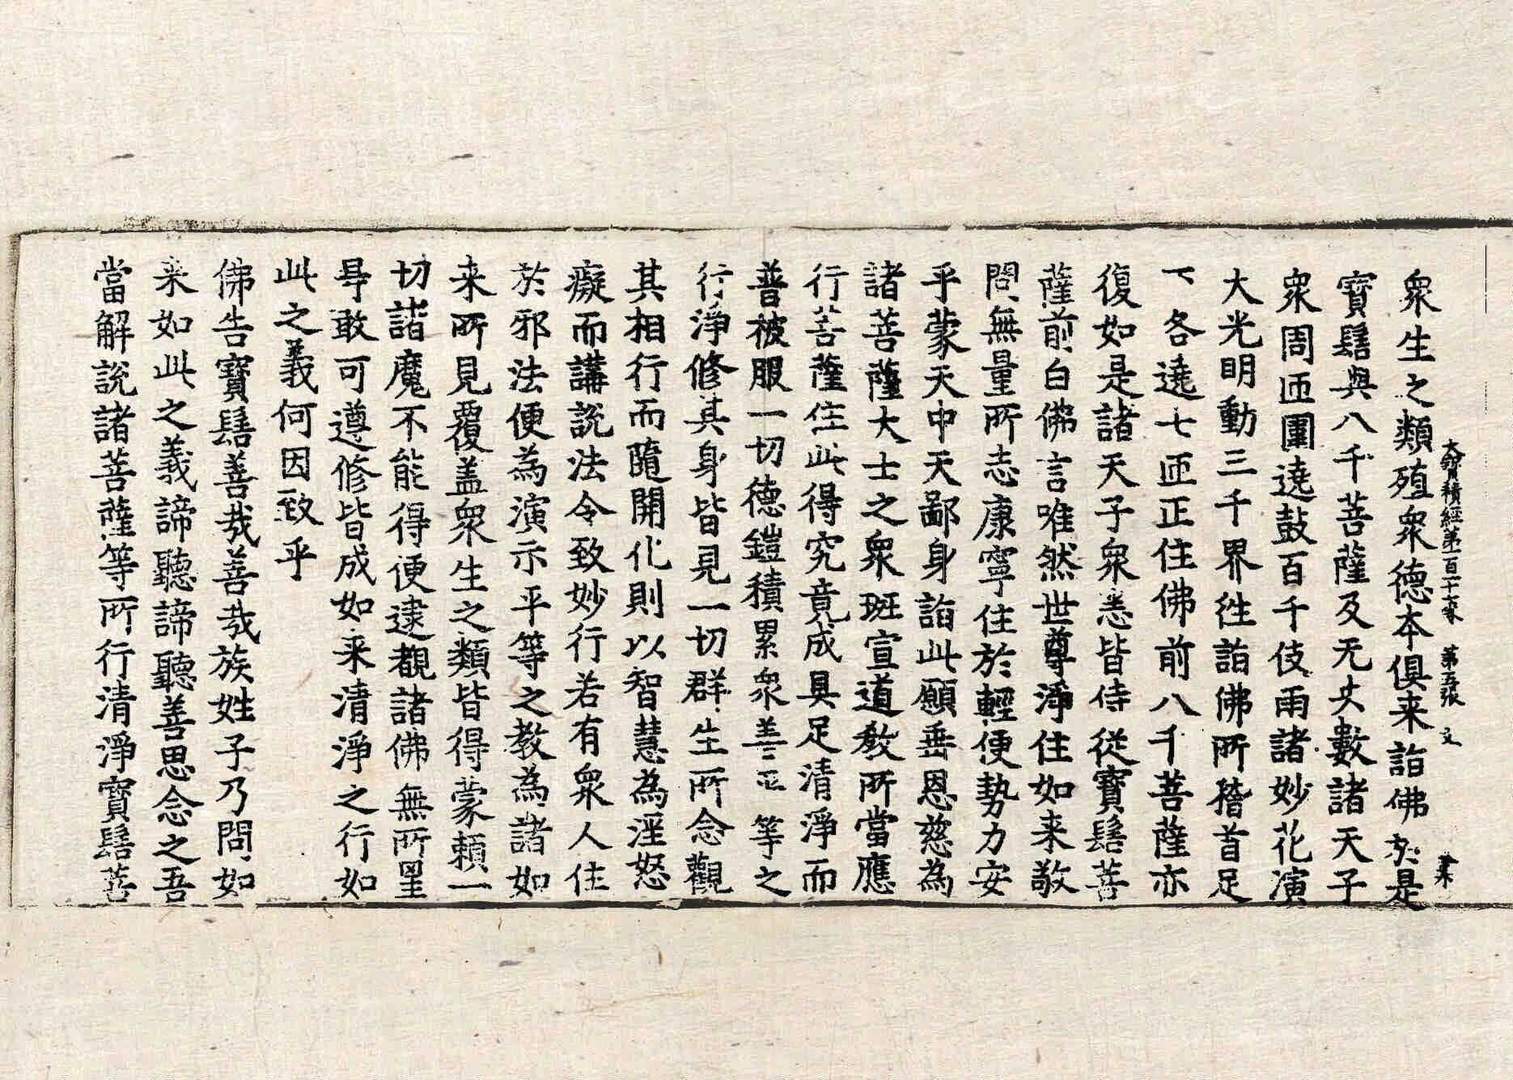 大寶積經第一百十七卷　第五張　文
衆生之類殖衆德本俱来詣佛於是
寶髻與八千菩薩及无央數諸天子
衆周匝圍遶鼓百千伎雨諸妙花演
大光明動三千界往詣佛所稽首足
下各遶七匝正住佛前八千菩薩亦
復如是諸天子衆悉皆侍從寶髻菩
薩前白佛言唯然世尊淨住如来敬
問無量所志康寧住於輕便勢力安
乎蒙天中天鄙身詣此願垂恩慈為
諸菩薩大士之衆班宣道教所當應
行菩薩住此得究竟成具足清淨而
普被服一切德鎧積累衆善平等之
行淨修其身皆見一切群生所念觀
其相行而隨開化則以智慧為淫怒
癡而講說法令致妙行若有衆人住
於邪法便為演示平等之教為諸如
来所見覆盖衆生之類皆得蒙頼一
切諸魔不能得便逮覩諸佛無所罣
㝵敢可遵修皆成如来清淨之行如
此之義何因致乎
佛告寶髻善哉善哉族姓子乃問如
来如此之義諦聽諦聽善思念之吾
當解說諸菩薩等所行清淨寶髻菩